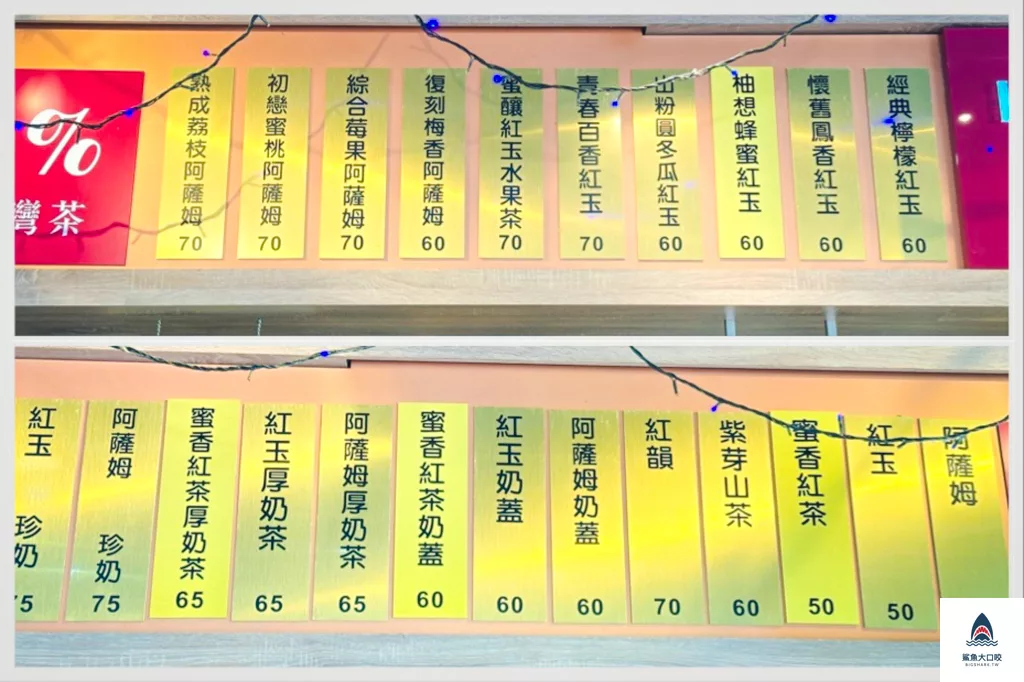 %
灣茶
熟成荔枝阿薩姆 70
初戀蜜桃阿薩姆 70
綜合莓果阿薩姆 70
復刻梅香阿薩姆 60
蜜釀紅玉水果茶 70
青春百香紅玉 70
出粉圓冬瓜紅玉 60
柚想蜂蜜紅玉 60
懷舊鳳香紅玉 60
經典檸檬紅玉 60
紅玉 珍奶 75
阿薩姆 珍奶 75
蜜香紅茶厚奶茶 65
紅玉厚奶茶 65
阿薩姆厚奶茶 65
蜜香紅茶奶蓋 60
紅玉奶蓋 60
阿薩姆奶蓋 60
紅韻 70
紫芽山茶 60
蜜香紅茶 50
紅玉 50
阿薩姆
鯊魚大口咬
BIGSHARK.TW